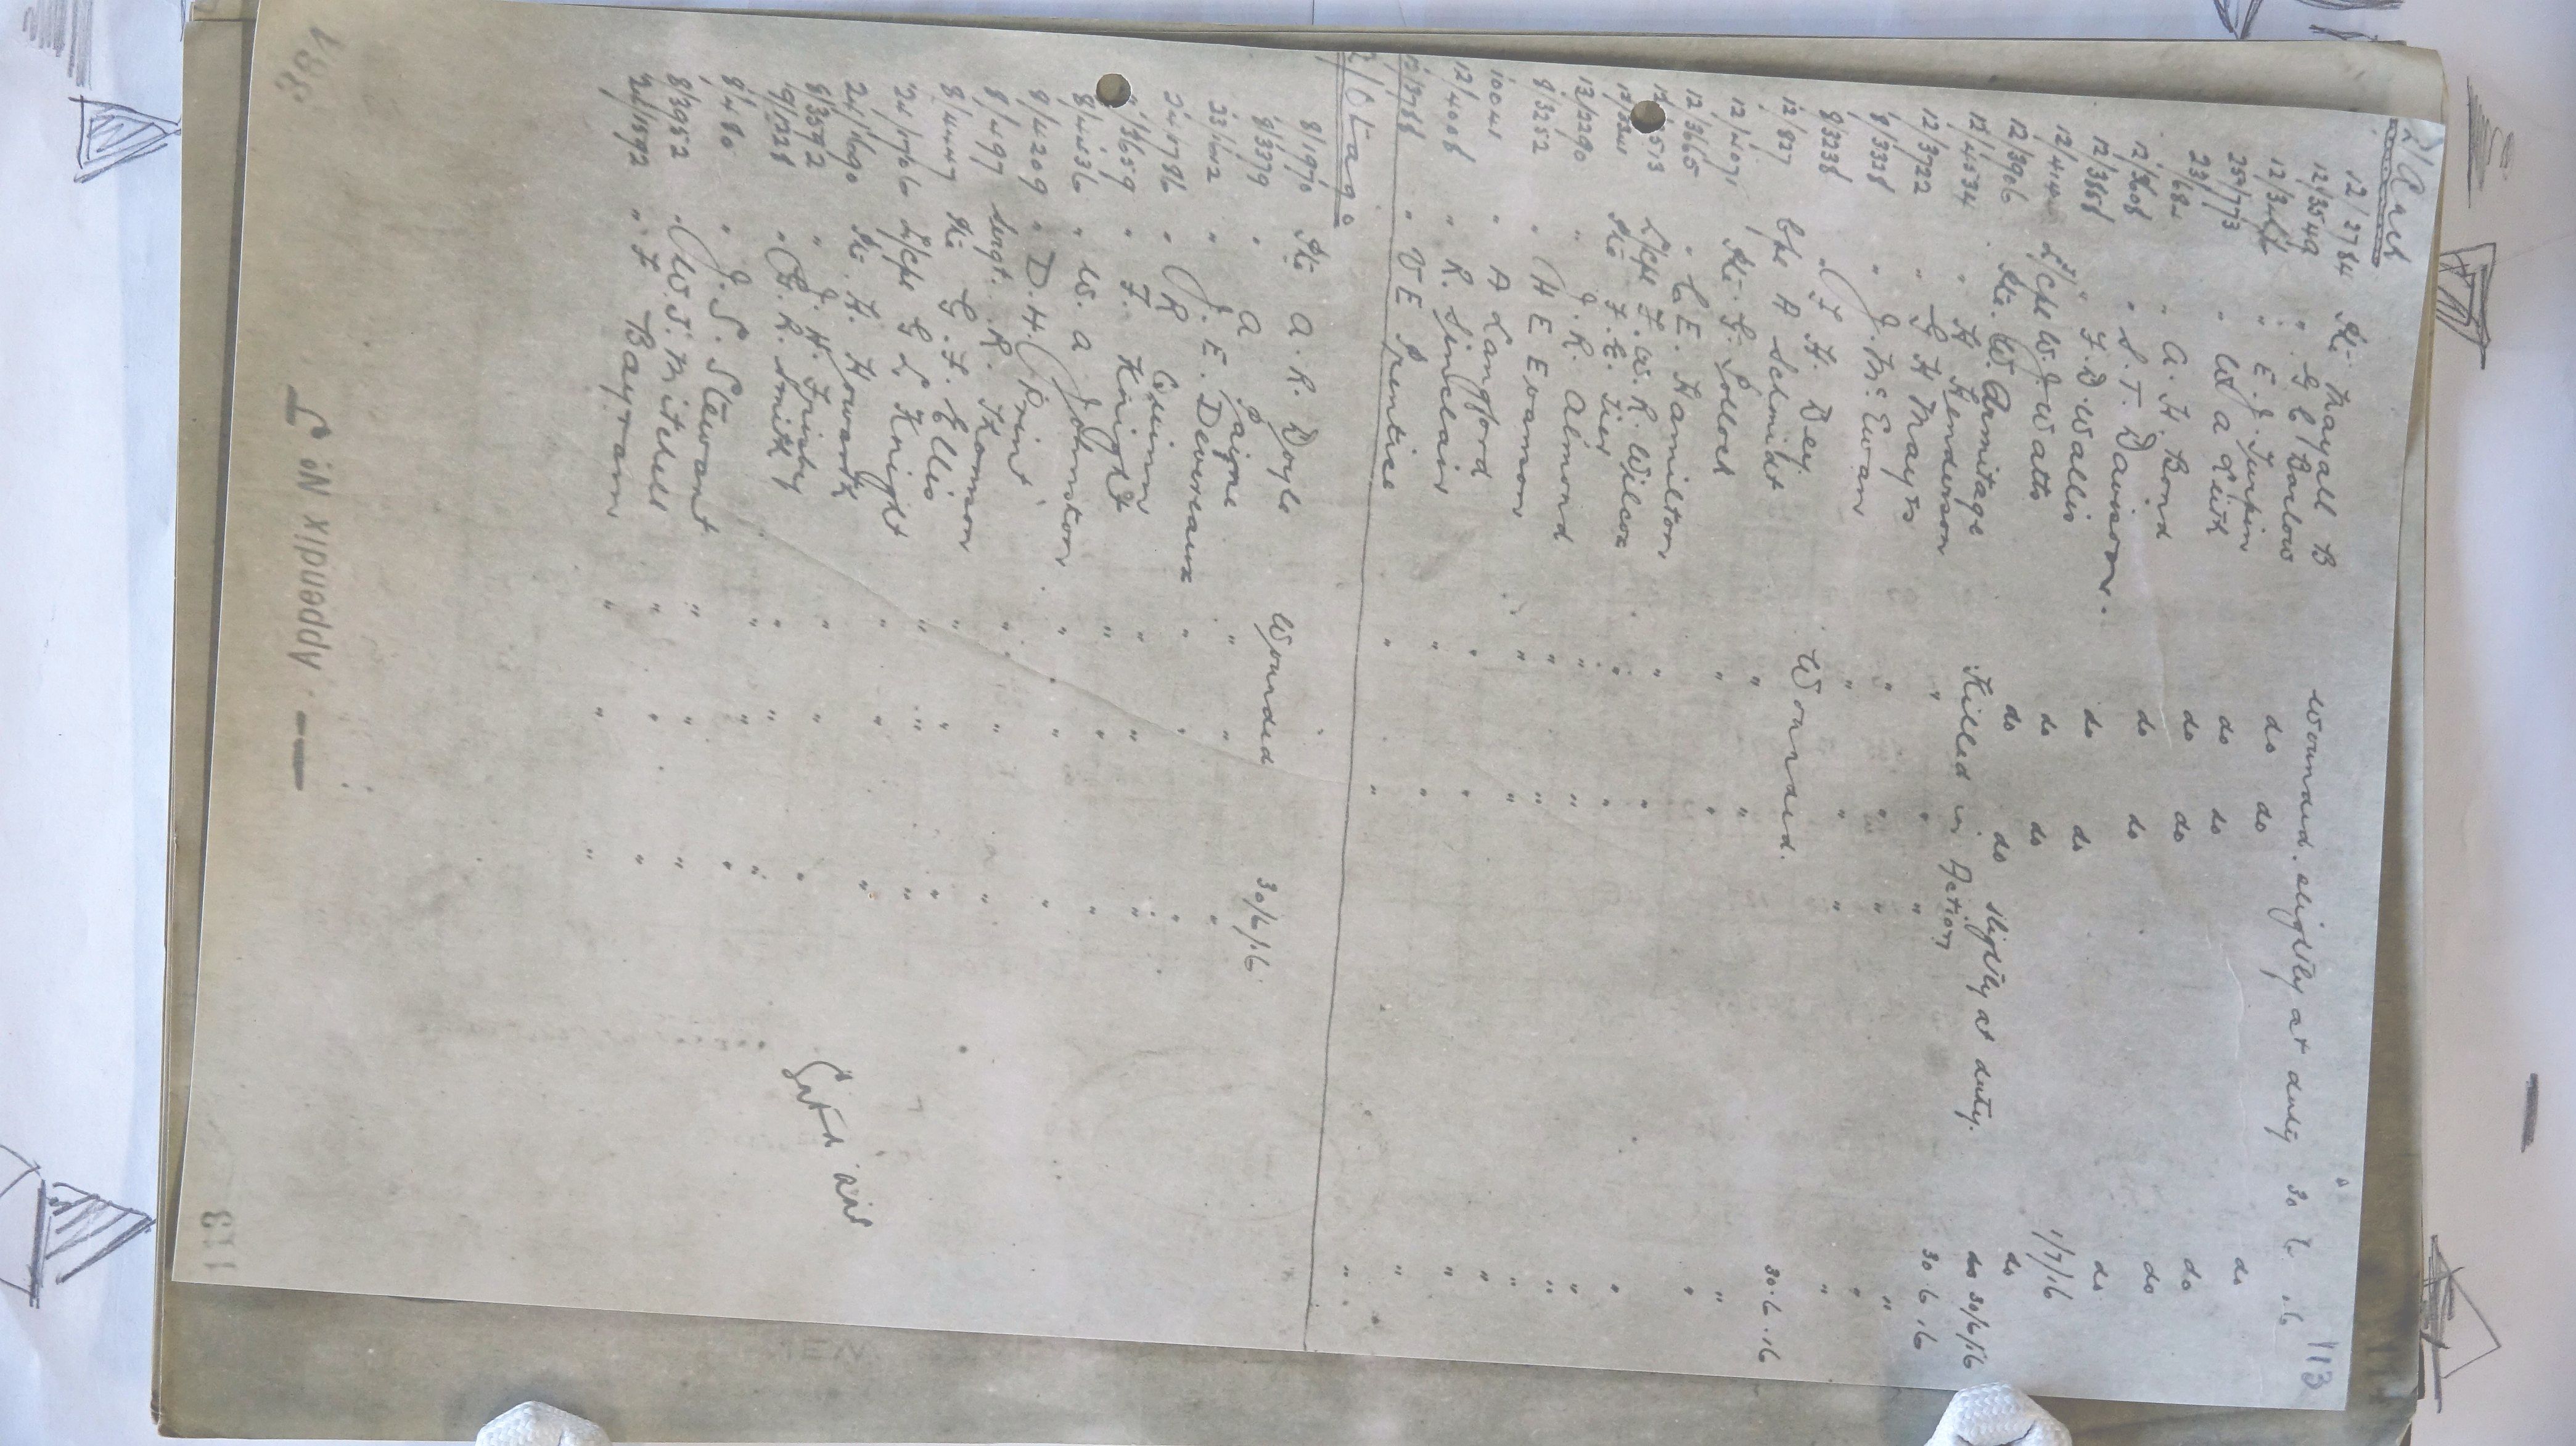 113
2/Auck
12/2784 Pte Mayall B Wounded. slightly at duty 30 6 16
12/3549 " G C Barlow do do do
" E. J. Turpin do do do
25/773 " W A Leith do do do
23/ " A. H. Bond do do do
12/3608 " S. T. Davison. do do
12/3868 " F. D. Wallis do do 1/7/16
12/414 L/Cpl W. J. Watts do do do
12/3906 Pte. W. Armitage do do slightly at duty. do 30/6/16
12/4534 " H Henderson Killed in Action 30.6.16
12/3722 " G H Mayes " " " "
8/3328 " J. McEwan " " " "
8/3238 " F. H. Dey. " " " "
12/827 Cpl A Schmidt Wounded. 30.6.16
12/4071 Pte. G. Pollock " " "
12/3665 " C E. Hamilton " " "
L/Cpl F. W. R. Wilcox " " "
Pte F. E. Tier " " "
13/2290 " J. R. Almond " " "
8/3252 " H E Evamon " " "
10041 " A Langford " " "
12/4008 " R. Sinclair " " "
12/3788 " V E Prentice " " "
2/Otago
8/1970 Pte A. R. Doyle Wounded 30/6/16.
8/3379 " A Paigne " " "
23/1612 " J. E. Devereaux " " "
24/1786 " R Quinn " " "
8/3659 " F. Knight " " "
8/4436 " W. A Johnston " " "
8/4209 " D. H. Prine " " "
8/1497 Sergt. R. Thomson " " "
8/4447 Pte G. F. Ellis " " "
24/1706 L/Cpl G L Knight " " "
24/1690 Pte. H. Howarth " " "
8/3592 " J. H. Frisby " " "
9/1228 " C. R. Smith " " "
8/480 " J. S. Stewart " " "
8/3952 " W. J. Mitchell " " "
24/1592 " F Bayram " " "
Appendix No 5
381
113